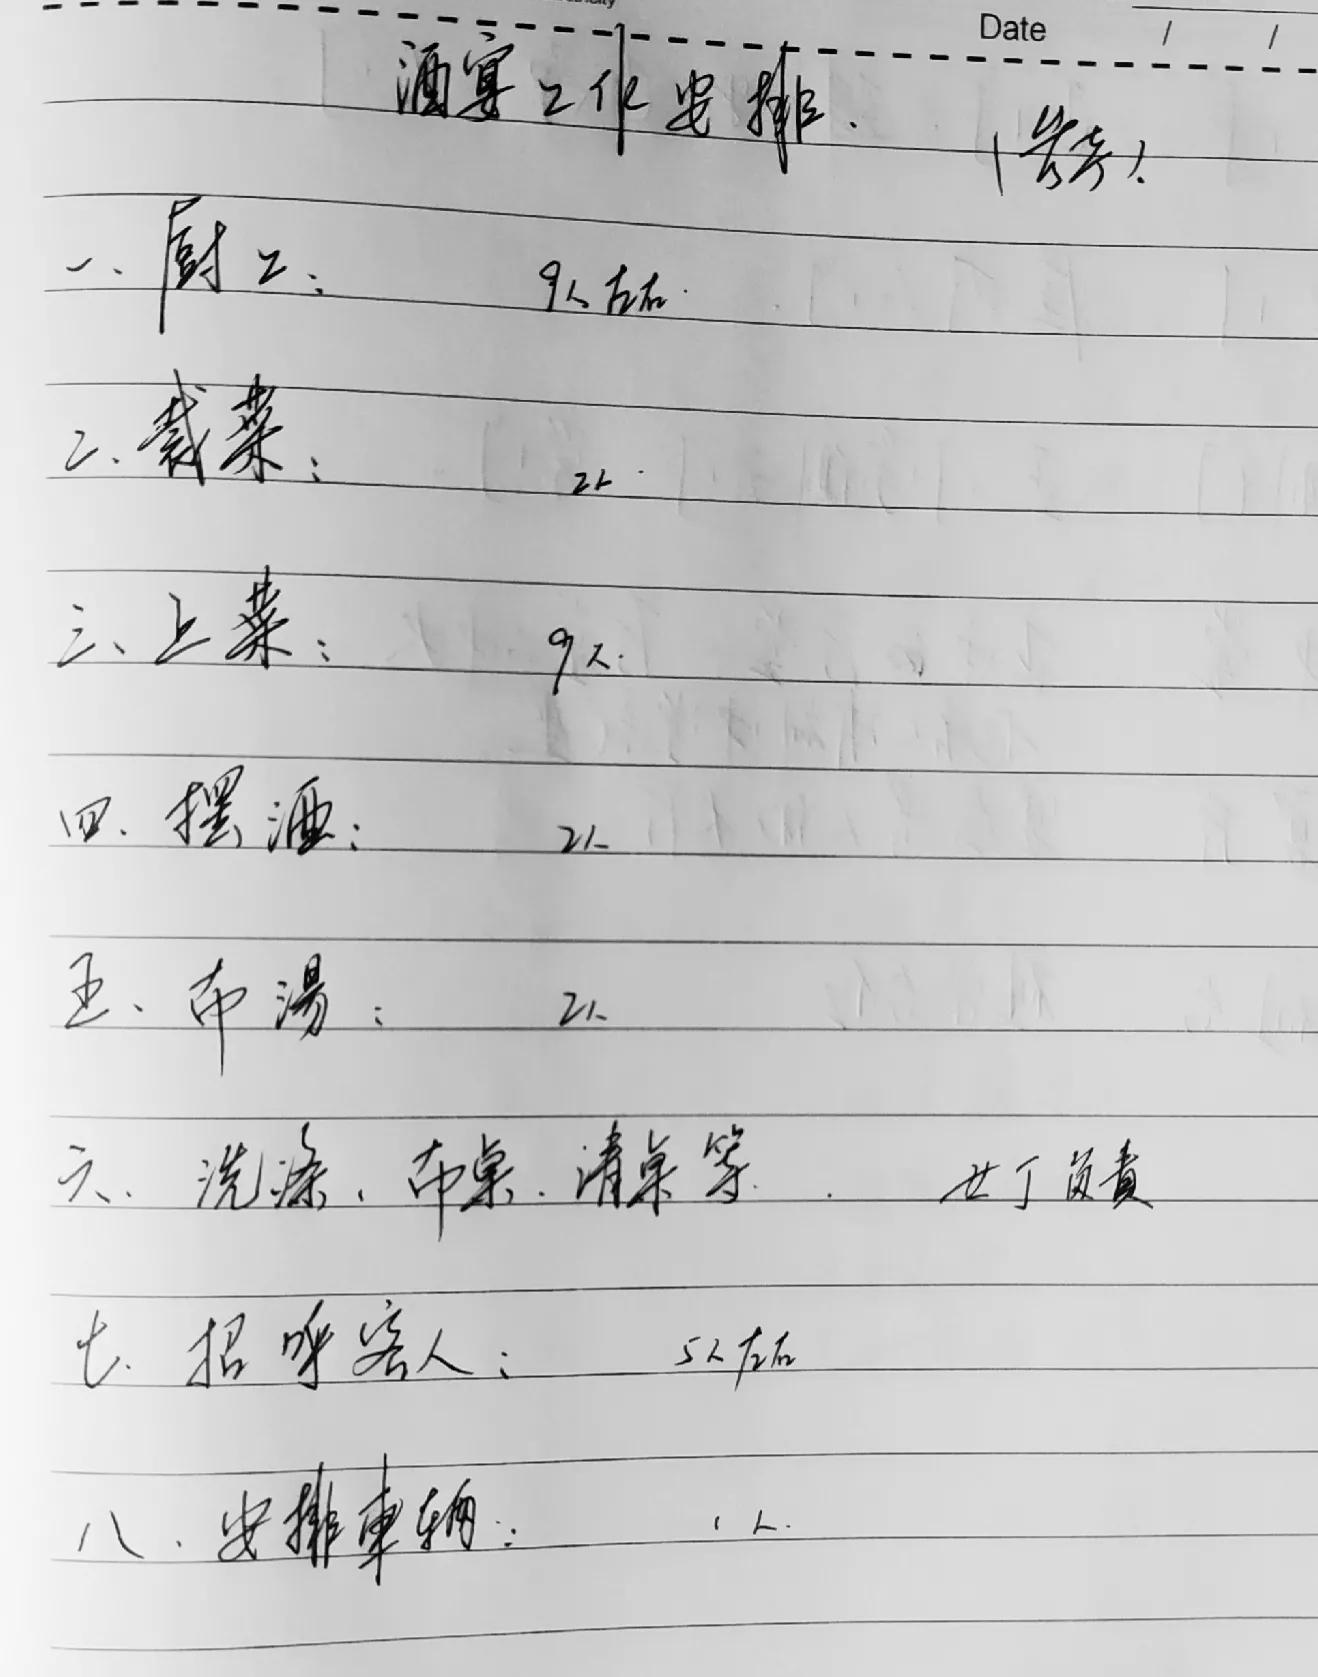 Date / /
酒宴工作安排.
一、厨工: 9人左右.
二.裁菜: 2人.
三、上菜: 9人.
四.摆酒: 2人
五、布湯: 2人
六.洗涤、布桌.清桌等. 女丁负責
七.招呼客人: 5人左右
八.安排車辆: 1人.